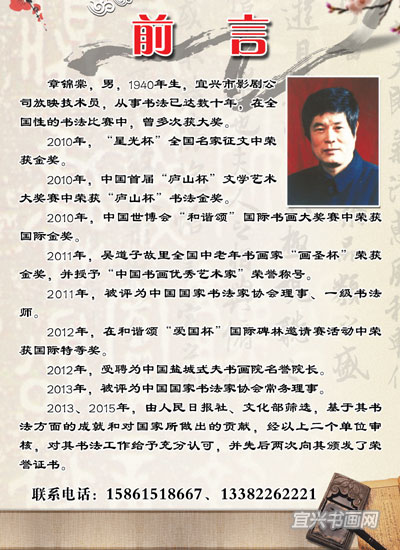 前 言
章锦棠，男，1940年生，宜兴市影剧公
司放映技术员，从事书法已达数十年。在全
国性的书法比赛中，曾多次获大奖。
2010年，“星光杯”全国名家征文中荣
获金奖。
2010年，中国首届“庐山杯”文学艺术
大奖赛中荣获“庐山杯”书法金奖。
2010年，中国世博会“和谐颂”国际书画大奖赛中荣获
国际金奖。
2011年，吴道子故里全国中老年书画家“画圣杯”荣获
金奖，并授予“中国书画优秀艺术家”荣誉称号。
2011年，被评为中国国家书法家协会理事、一级书法
师。
2012年，在和谐颂“爱国杯”国际碑林邀请赛活动中荣
获国际特等奖。
2012年，受聘为中国盐城式夫书画院名誉院长。
2013年，被评为中国国家书法家协会常务理事。
2013、2015年，由人民日报社、文化部筛选，基于其书
法方面的成就和对国家所做出的贡献，经以上二个单位审
核，对其书法工作给予充分认可，并先后两次向其颁发了荣
誉证书。
联系电话：15861518667、13382262221
宜兴书画网